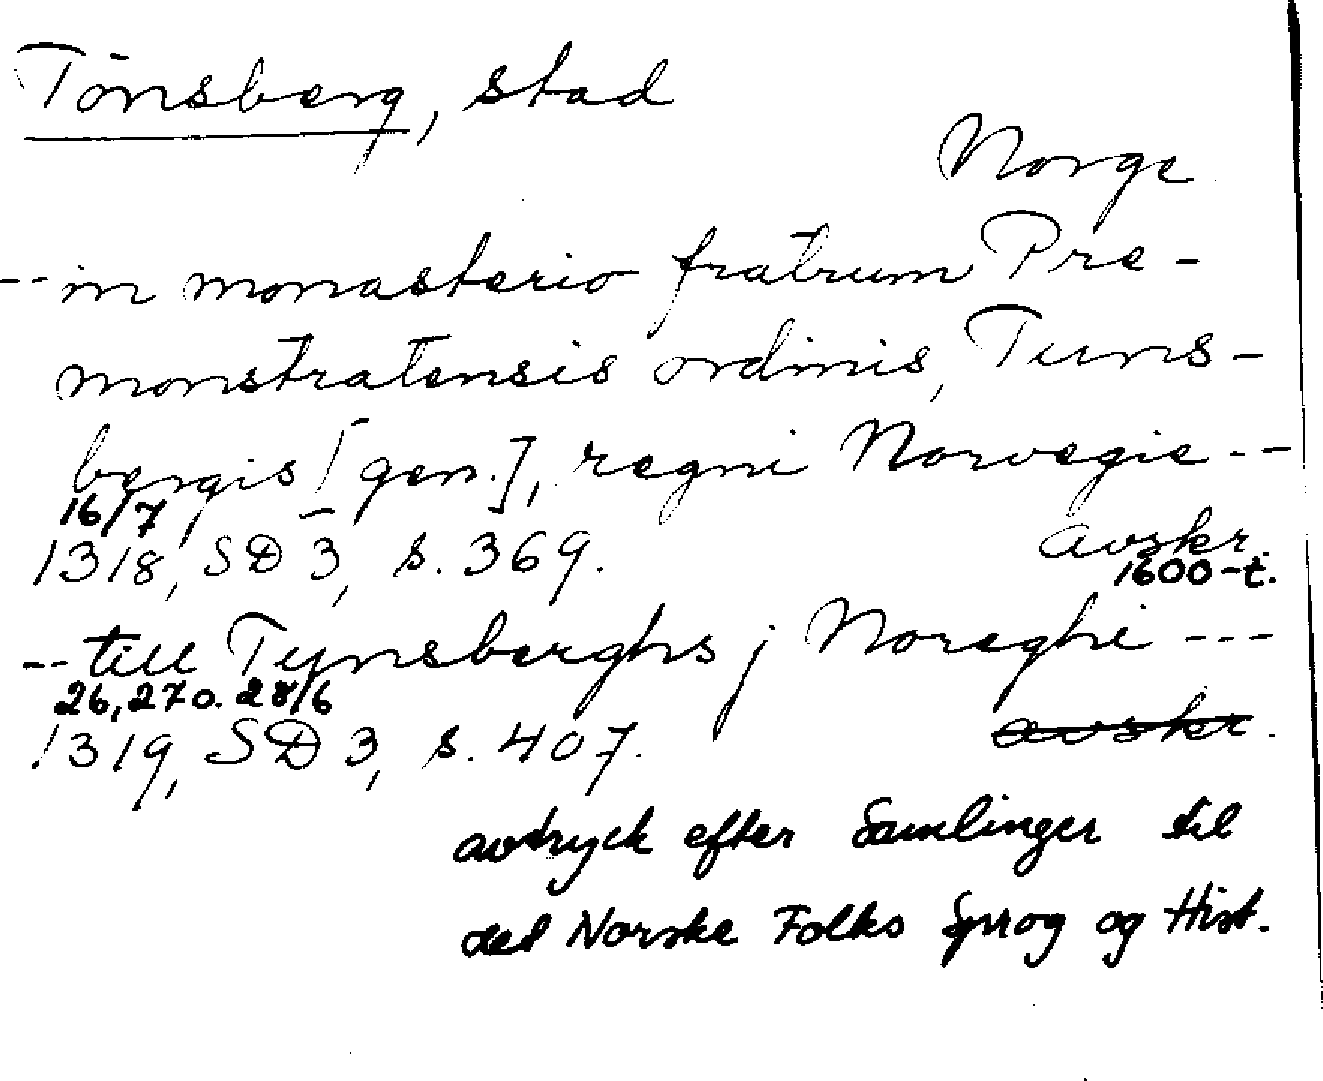 Tönsberg, stad
Norge
-- in monasterio fratrum Pre-
monstratensis ordinis, Tuns-
bergis [gen.], regni Norvegie --
16/7
1318, SD 3, s. 369. avskr.
1600-t.
-- till Tynsberghs j Noreghi ---
26, 27 o. 28/6
1319, SD 3, s. 407. avskr.
avtryck efter Samlinger til
det Norske Folks Sprog og Hist.